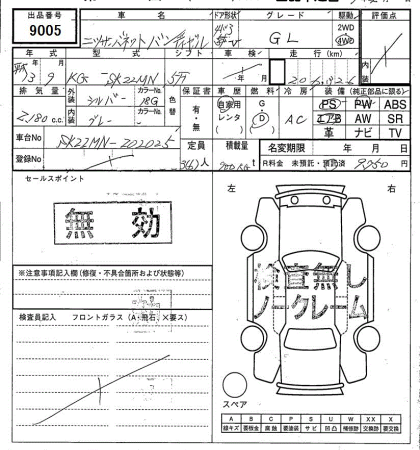 出品番号 車名 ドア形状 グレード 駆動 評価点
9005 ニッサンバネットバンディーゼル GL 2WD
4WD
年式 型式 シフト 車検 走行(km)
13 9 KG- SK22MN 5万
排気量 外装 シルバー カラーNo. 18G 色替 保証書 車歴 燃料 冷房 装備(純正部品に限る)
2,180 c.c. 内装 グレー カラーNo. 有・無 自家用 レンタ G・D AC PS PW ABS
エアB AW SR
革 ナビ TV
車台No SK22MN-202025 定員 積載量 名変期限 年 月 日
登録No 3(6)人 R料金 未預託・預託済 円
セールスポイント 左 右
無効
検査無し
ノークレーム
※注意事項記入欄(修復・不具合箇所および状態等)
検査員記入 フロントガラス(A・飛石、×要ス)
スペア
A B C P S U W X XX
線キズ 要板金 腐蝕 要塗装 サビ 凹凸 補修跡 交換跡 要交換